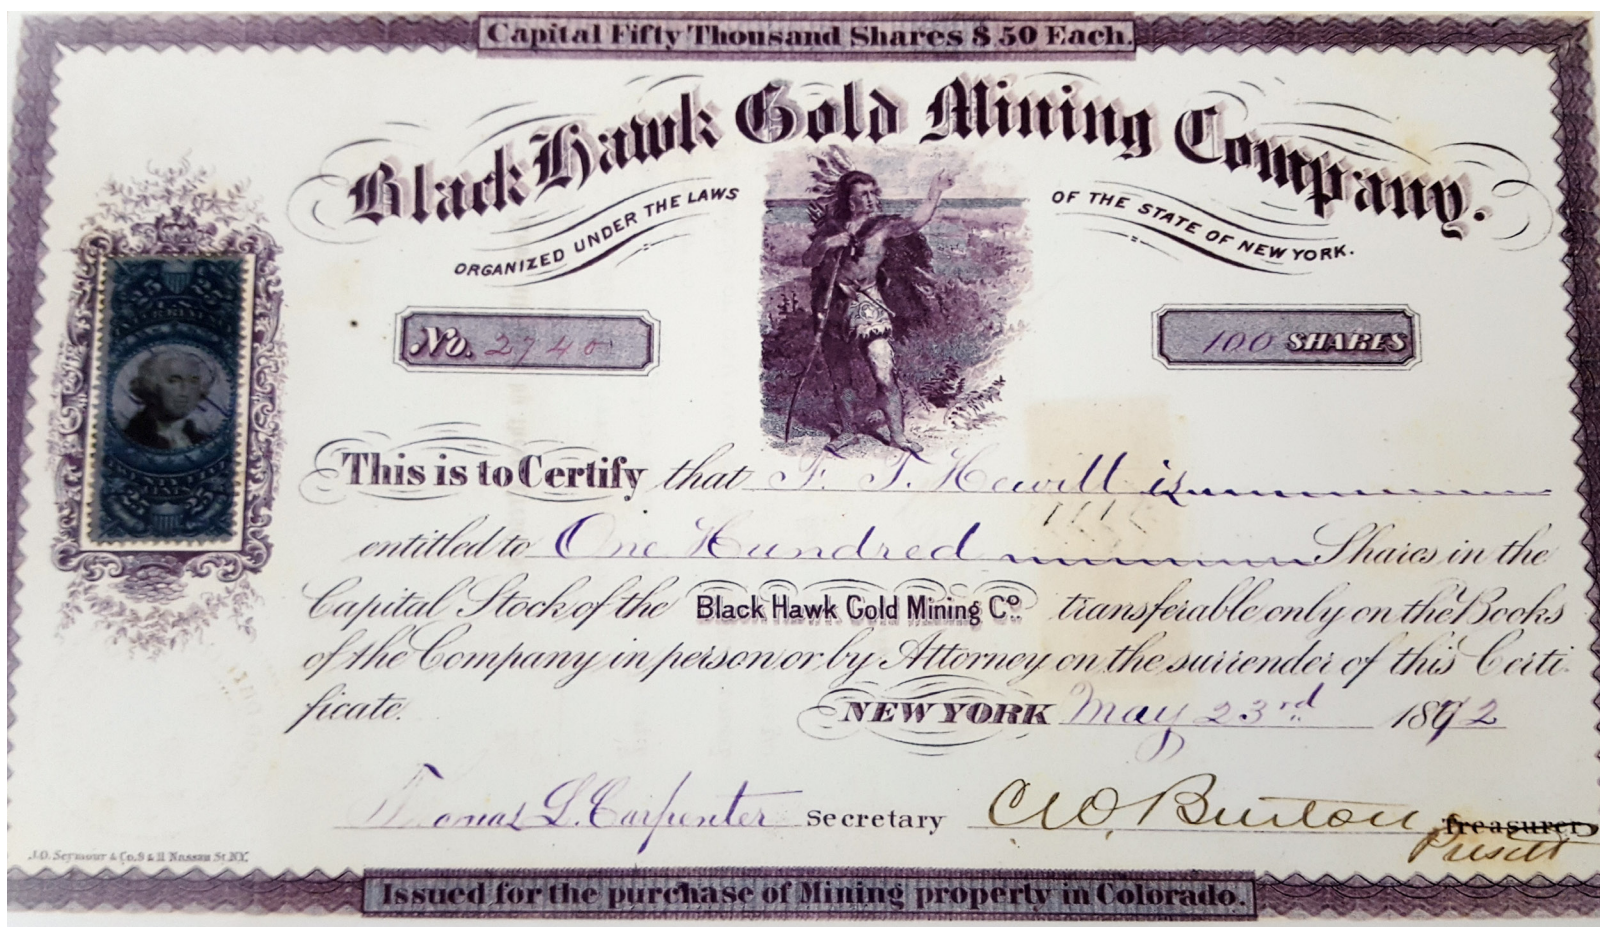 Capital Fifty Thousand Shares $50 Each.
Black Hawk Gold Mining Company.
ORGANIZED UNDER THE LAWS OF THE STATE OF NEW YORK.
No. 2740
100 SHARES
25 25
U.S.
TWENTY FIVE
CENTS
25 25
This is to Certify that F. T. Hewitt is
entitled to One Hundred Shares in the
Capital Stock of the Black Hawk Gold Mining Co. transferable only on the Books
of the Company in person or by Attorney on the surrender of this Certi-
ficate.
NEW YORK May 23rd 1892
Thomas L. Carpenter Secretary Burton Treasurer
J.O. Seymour & Co. 9 & 11 Nassau St. N.Y.
Issued for the purchase of Mining property in Colorado.